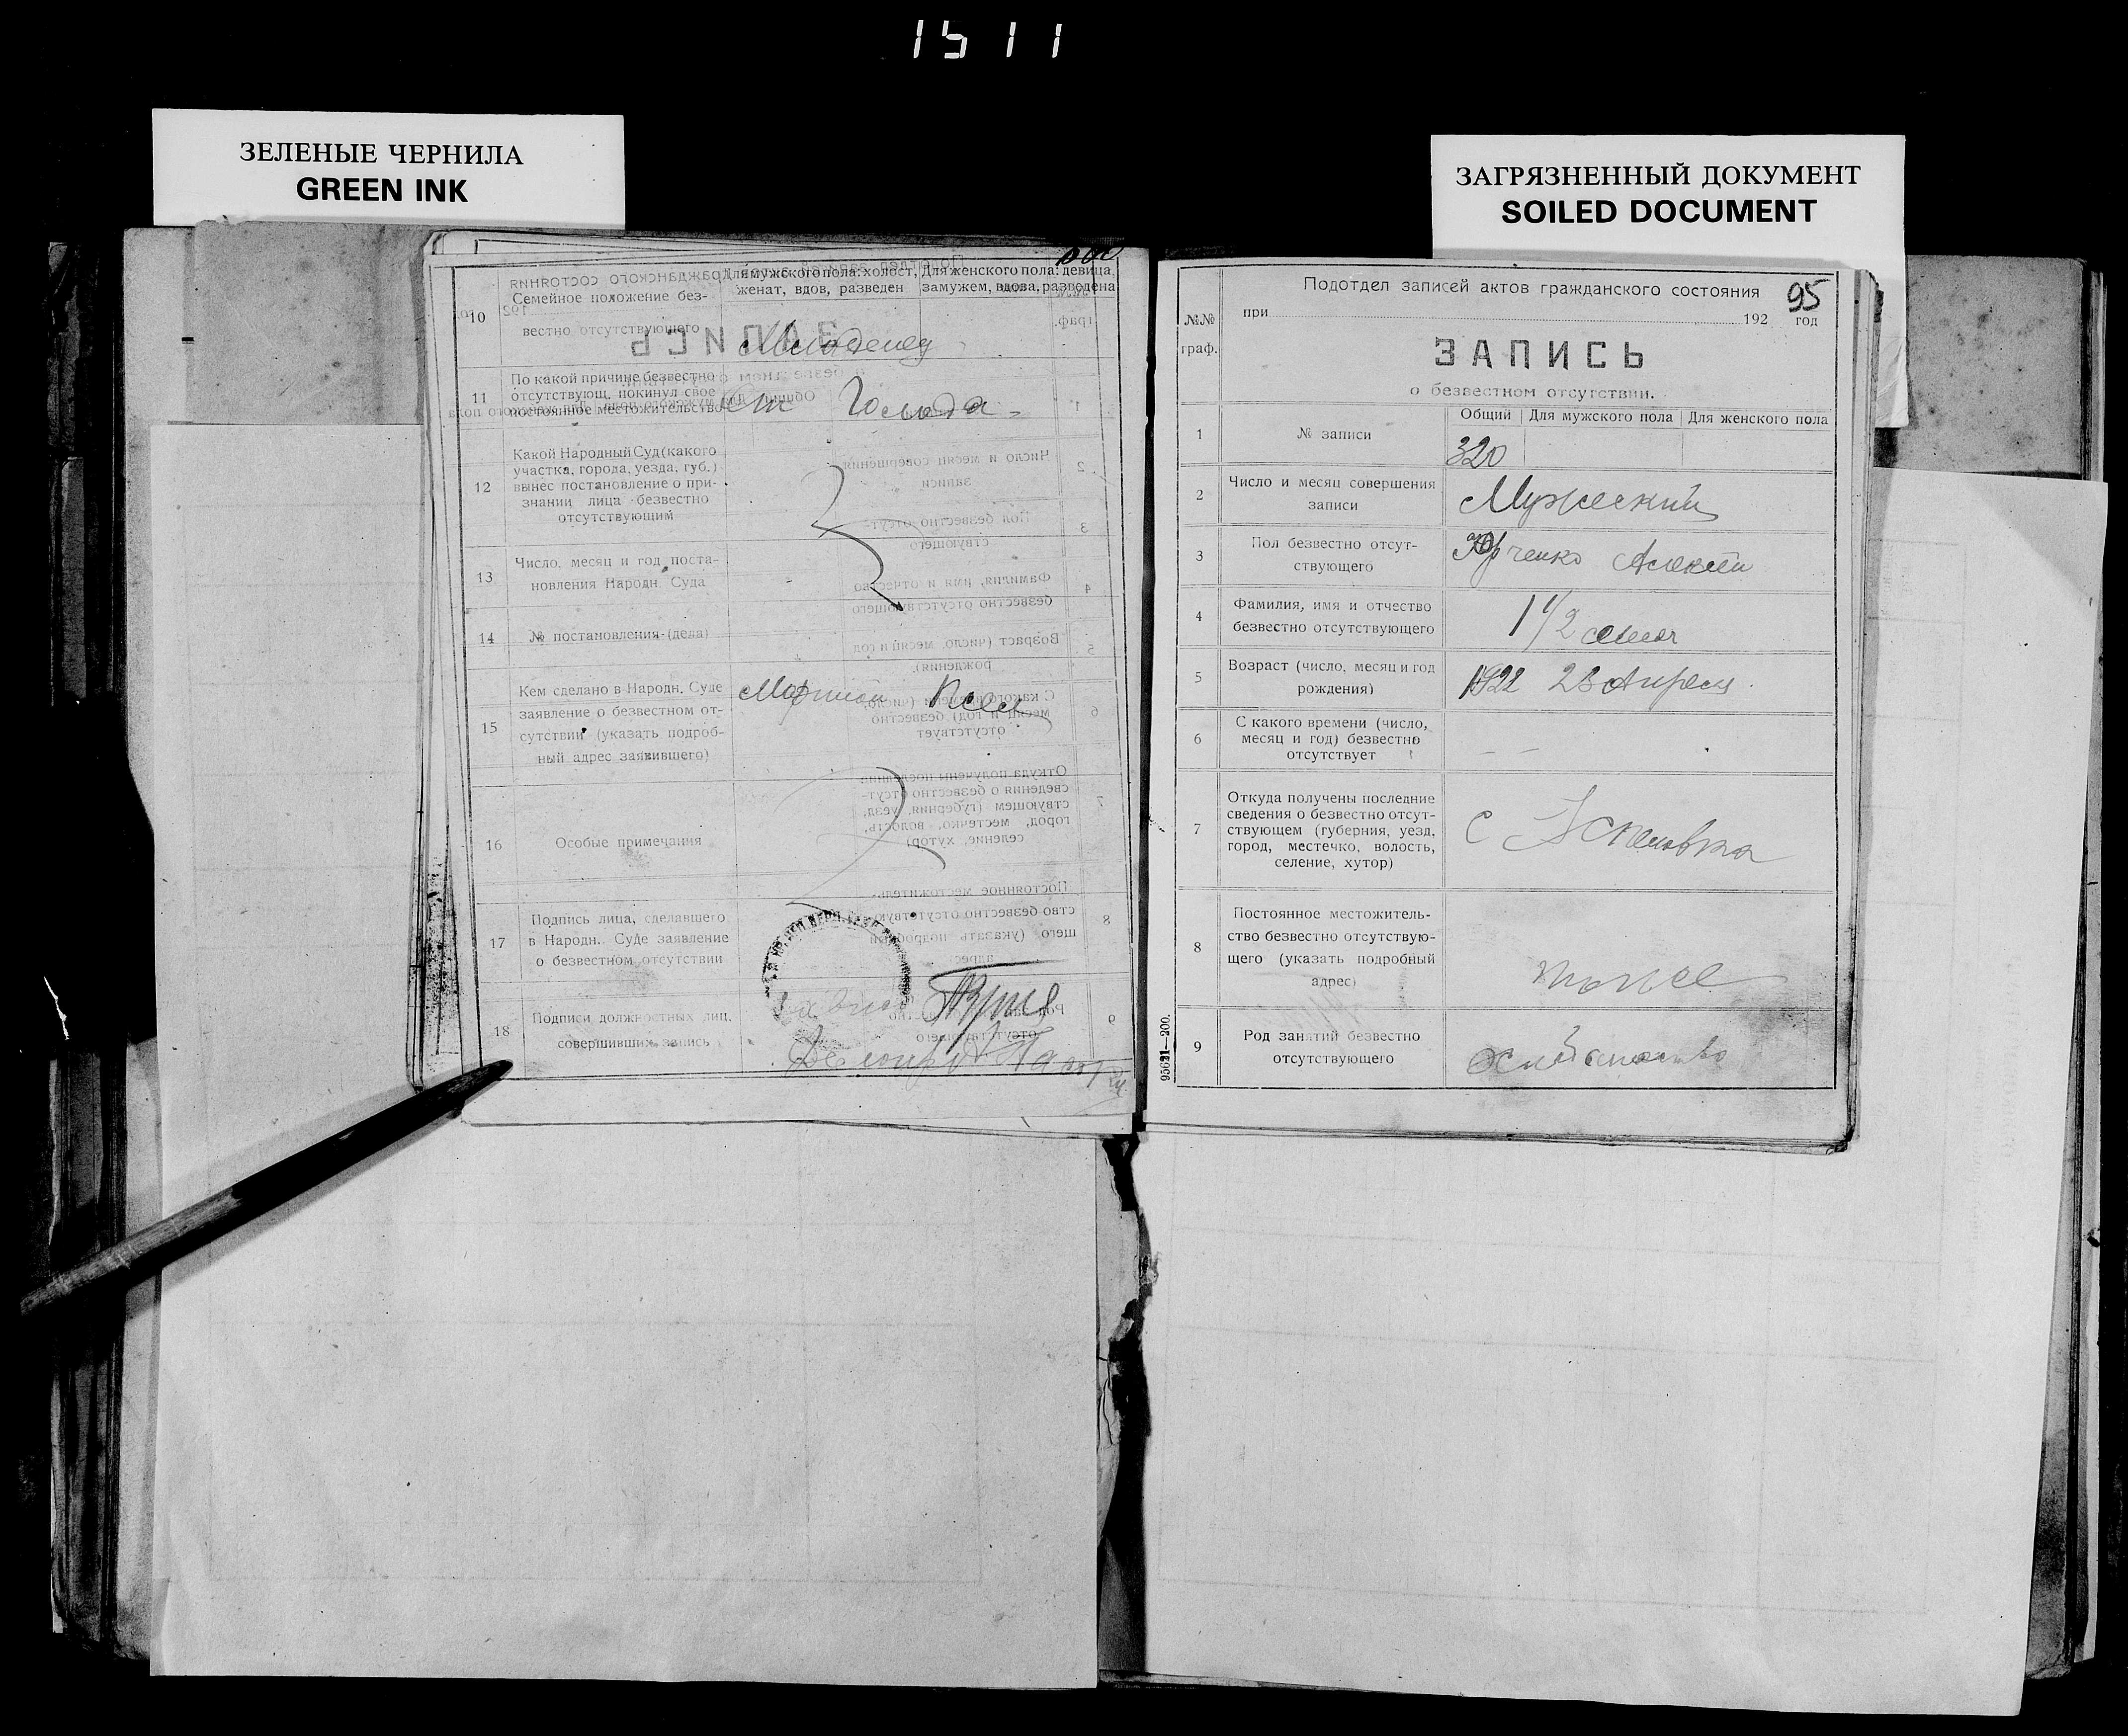 1511
ЗЕЛЕНЫЕ ЧЕРНИЛА
GREEN INK
ЗАГРЯЗНЕННЫЙ ДОКУМЕНТ
SOILED DOCUMENT
10
Семейное положение без-
вестно отсутствующего
Для мужского пола: холост,
женат, вдов, разведен
Для женского пола: девица,
замужем, вдова, разведена
Младенец
11
По какой причине безвестно
отсутствующ. покинул свое
постоянное местожительство
от Голода
12
Какой Народный Суд (какого
участка, города, уезда, губ.)
вынес постановление о при-
знании лица безвестно
отсутствующим
13
Число, месяц и год поста-
новления Народн. Суда
14
№ постановления (дела)
15
Кем сделано в Народн. Суде
заявление о безвестном от-
сутствии (указать подроб-
ный адрес заявившего)
16
Особые примечания
17
Подпись лица, сделавшего
в Народн. Суде заявление
о безвестном отсутствии
18
Подписи должностных лиц,
совершивших запись
Подотдел записей актов гражданского состояния
95
при 192 год
№№
граф.
ЗАПИСЬ
о безвестном отсутствии.
1
№ записи
Общий Для мужского пола Для женского пола
320
2
Число и месяц совершения
записи
Мужеский
3
Пол безвестно отсут-
ствующего
Юрченко Алексей
4
Фамилия, имя и отчество
безвестно отсутствующего
1 1/2
5
Возраст (число, месяц и год
рождения)
1922 28 Апреля
6
С какого времени (число,
месяц и год) безвестно
отсутствует
— —
7
Откуда получены последние
сведения о безвестно отсут-
ствующем (губерния, уезд,
город, местечко, волость,
селение, хутор)
С
8
Постоянное местожитель-
ство безвестно отсутствую-
щего (указать подробный
адрес)
тоже
9
Род занятий безвестно
отсутствующего
95621—200.